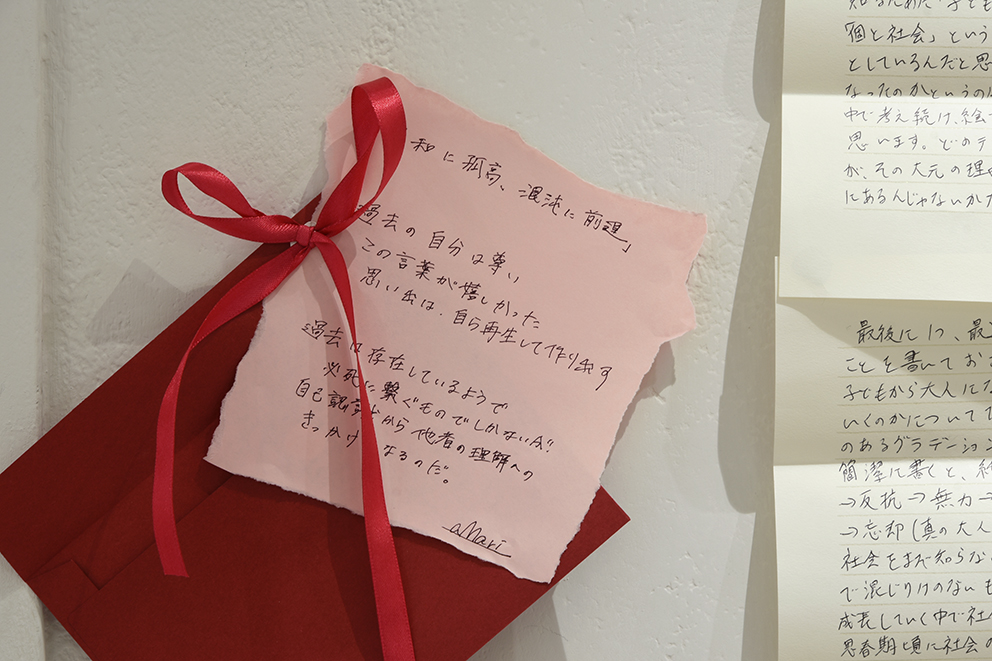 和に孤高、混沌に前進」
過去の自分は尊い
この言葉が嬉しかった
思い出は、自ら再生して作り出す
過去は存在しているようで
必死に繋ぐものでしかないが!
自己認 から他者の理解への
きっかけ なるのだ。
aMari
「個と社会」という
としているんだと思
なったのかというの
中で考え続け、絵
思います。どのテ
が、その大元の理
にあるんじゃないか
最後に1つ、最
ことを書いてお
子どもから大人にな
いくのかについて
のあるグラデーション
簡潔に書くと、
→反抗→無力→
→忘却(真の大人
社会をまだ知らな
で混じりけのないも
成長していく中で社
思春期頃に社会の